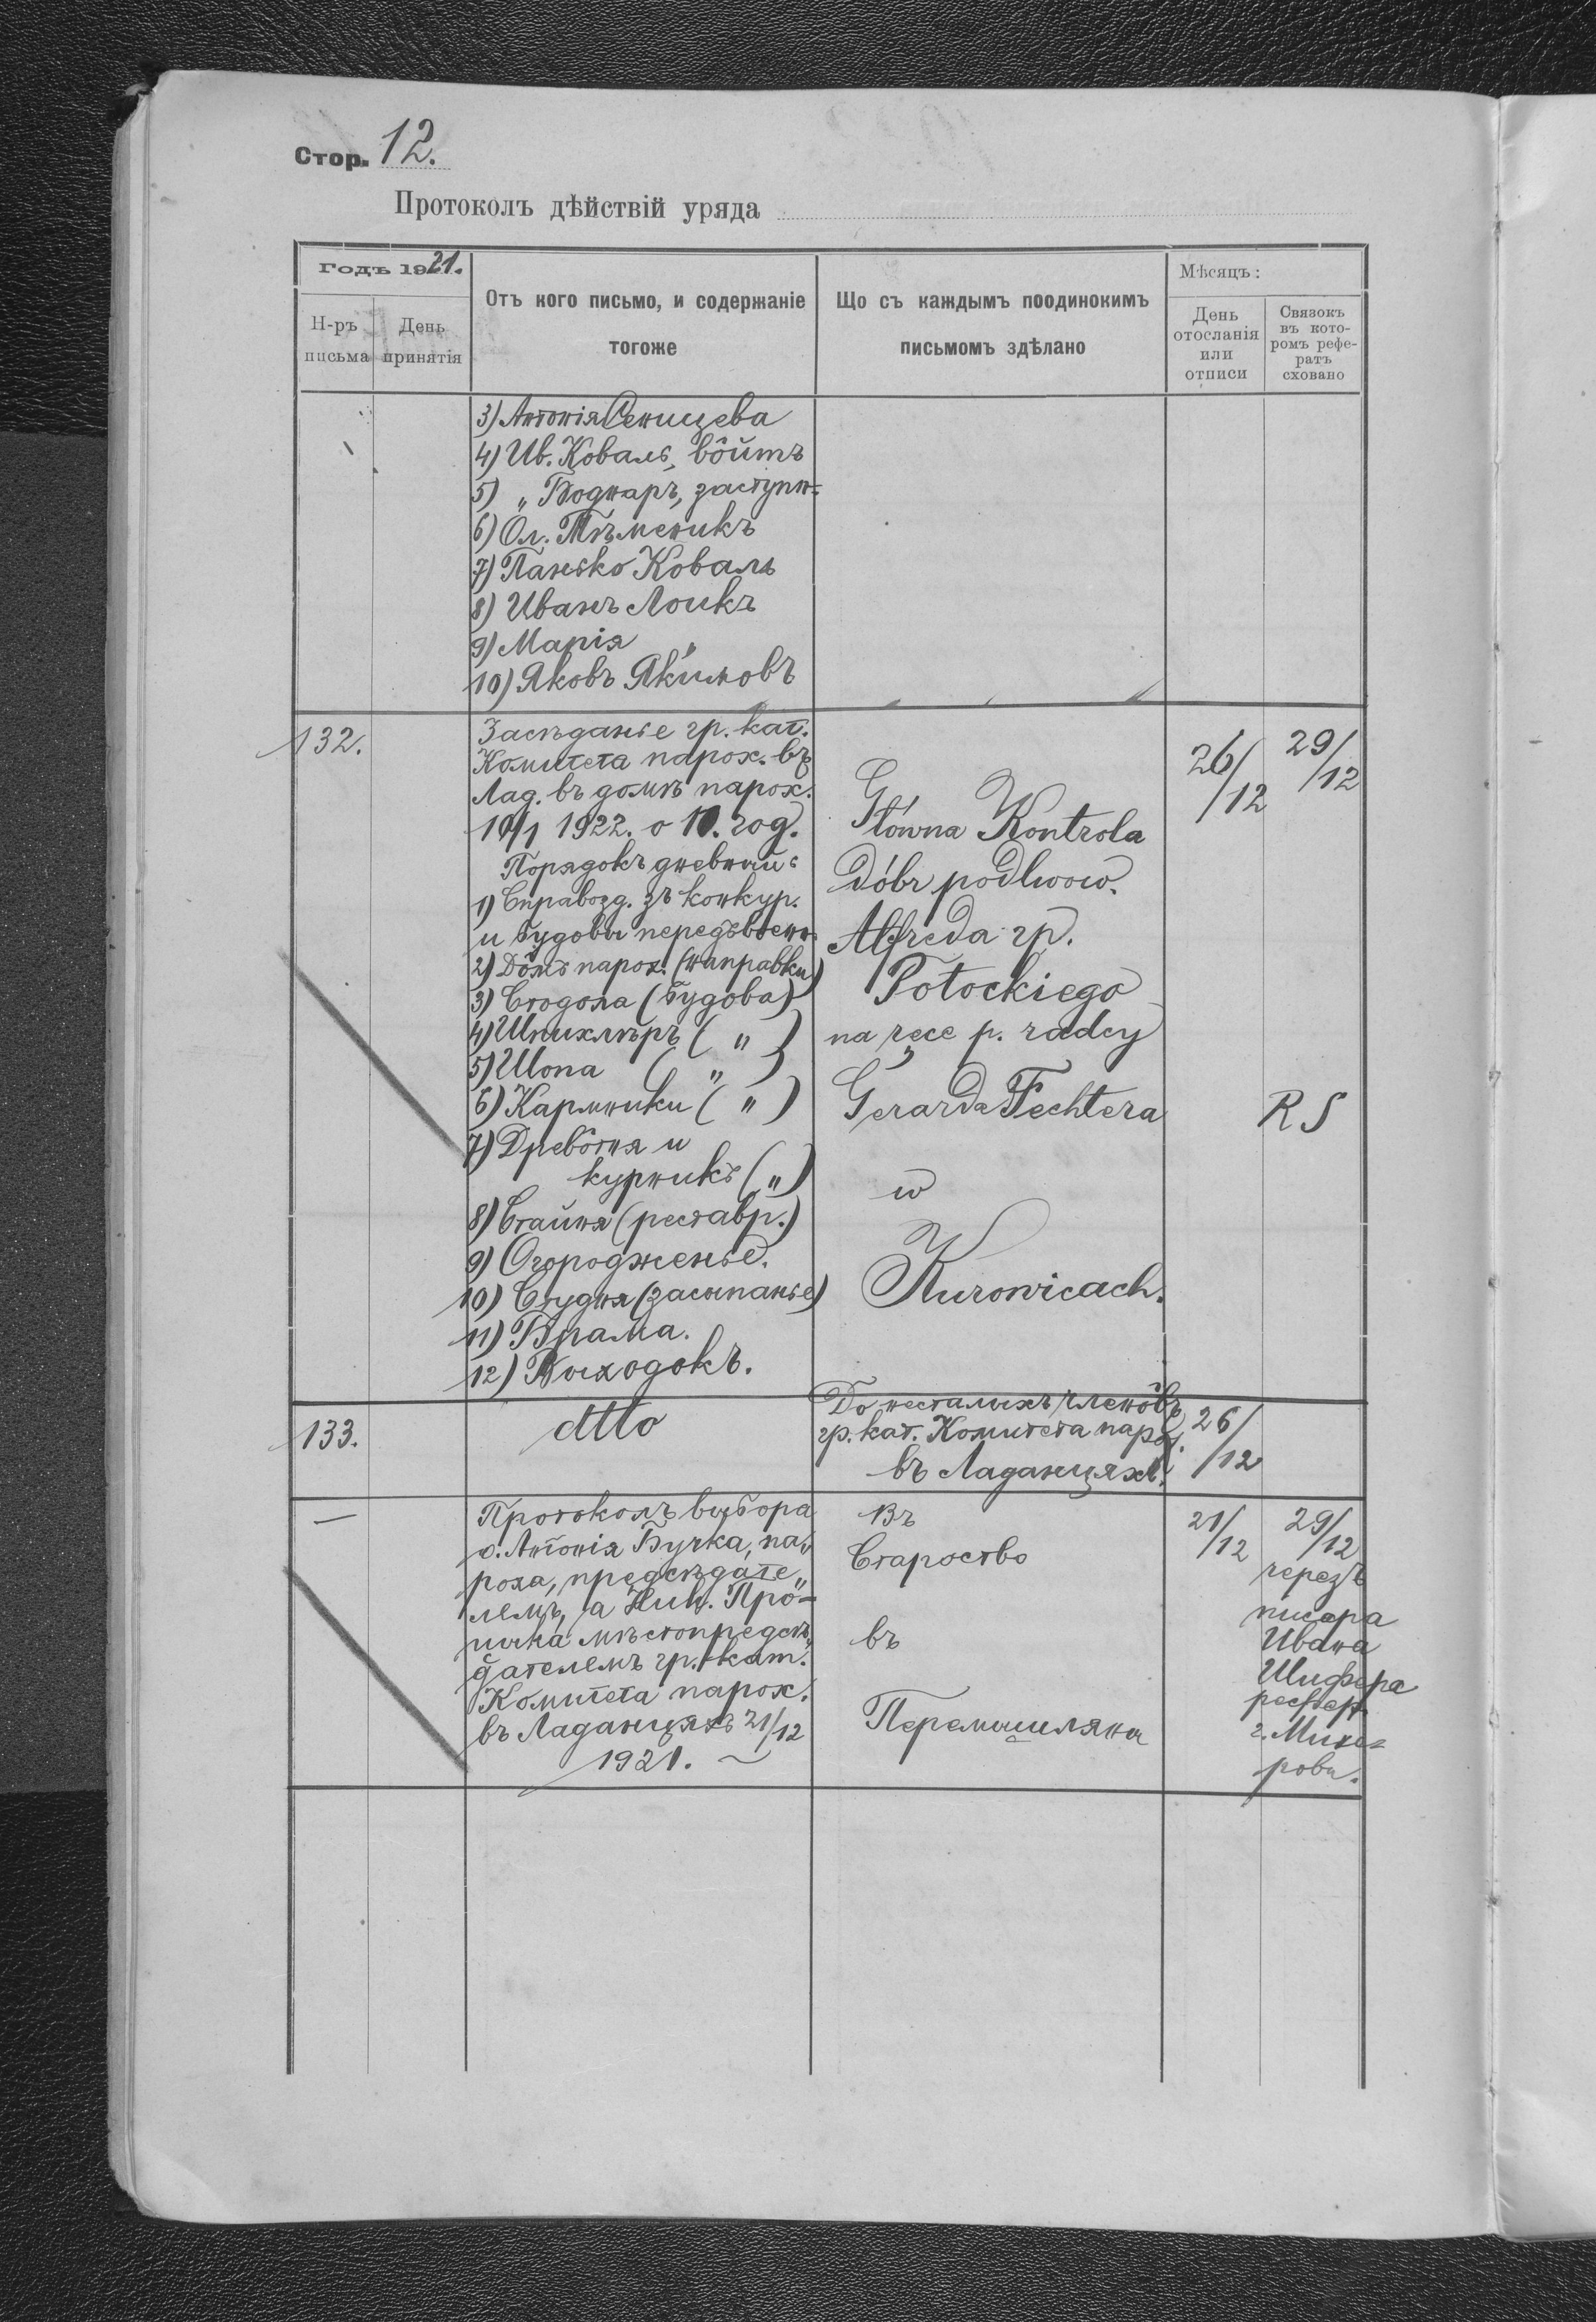 Стор. 12.
Протоколъ дѣйствій уряда
Годъ 1921.
Н-ръ письма
День принятія
Отъ кого письмо, и содержаніе
тогоже
Що съ каждымъ поодинокимъ
письмомъ здѣлано
Мѣсяцъ:
День
отосланія
или
отписи
Связокъ
въ кото-
ромъ рефе-
ратъ
сховано
3) Антонія Сенищева
4) Ив. Коваль, вôйтъ
5) „ Боднаръ, заступн.
6) Ол. Тѣменикъ
7) Панько Коваль
8) Иванъ Лоикъ
9) Марія "
10) Яковъ Якимовъ
132.
Засѣданье гр. кат.
Комитета парох. въ
Лад. въ домѣ парох.
10/1 1922. о 10. год.
Порядокъ дневный:
1) Справозд. зъ конкур.
и будовы передъвоенн.
2) Дôмъ парох. (направки)
3) Стодола (будова)
4) Шпихлѣръ ( " )
5) Шопа ( " )
6) Кармники ( " )
7) Древôтня и
курникъ ( " )
8) Стайня (реставр.)
9) Огородженье.
10) Студня (засыпанье)
11) Брама.
12) Выходокъ.
Główna Kontrola
dóbr podlwow.
Alfreda гр.
Potockiego
na ręce p. radcy
Gerarda Fechtera
w
Kurowicach.
26/12
29/12
RS
133.
dtto
До несталыхъ членôвъ
гр. кат. Комитета парох.
въ Ладанцяхъ.
26/12
—
Протоколъ выбора
о. Антонія Бучка, па„
роха, предсѣдате„
лемъ, а Ник.
мѣстопредсѣ„
дателемъ гр. кат.
Комитета парох.
въ Ладанцяхъ 21/12
1921. ~
Въ
Староство
въ
Перемышляны
21/12
29/12
черезъ
писаря
Ивана
Шифера
г.